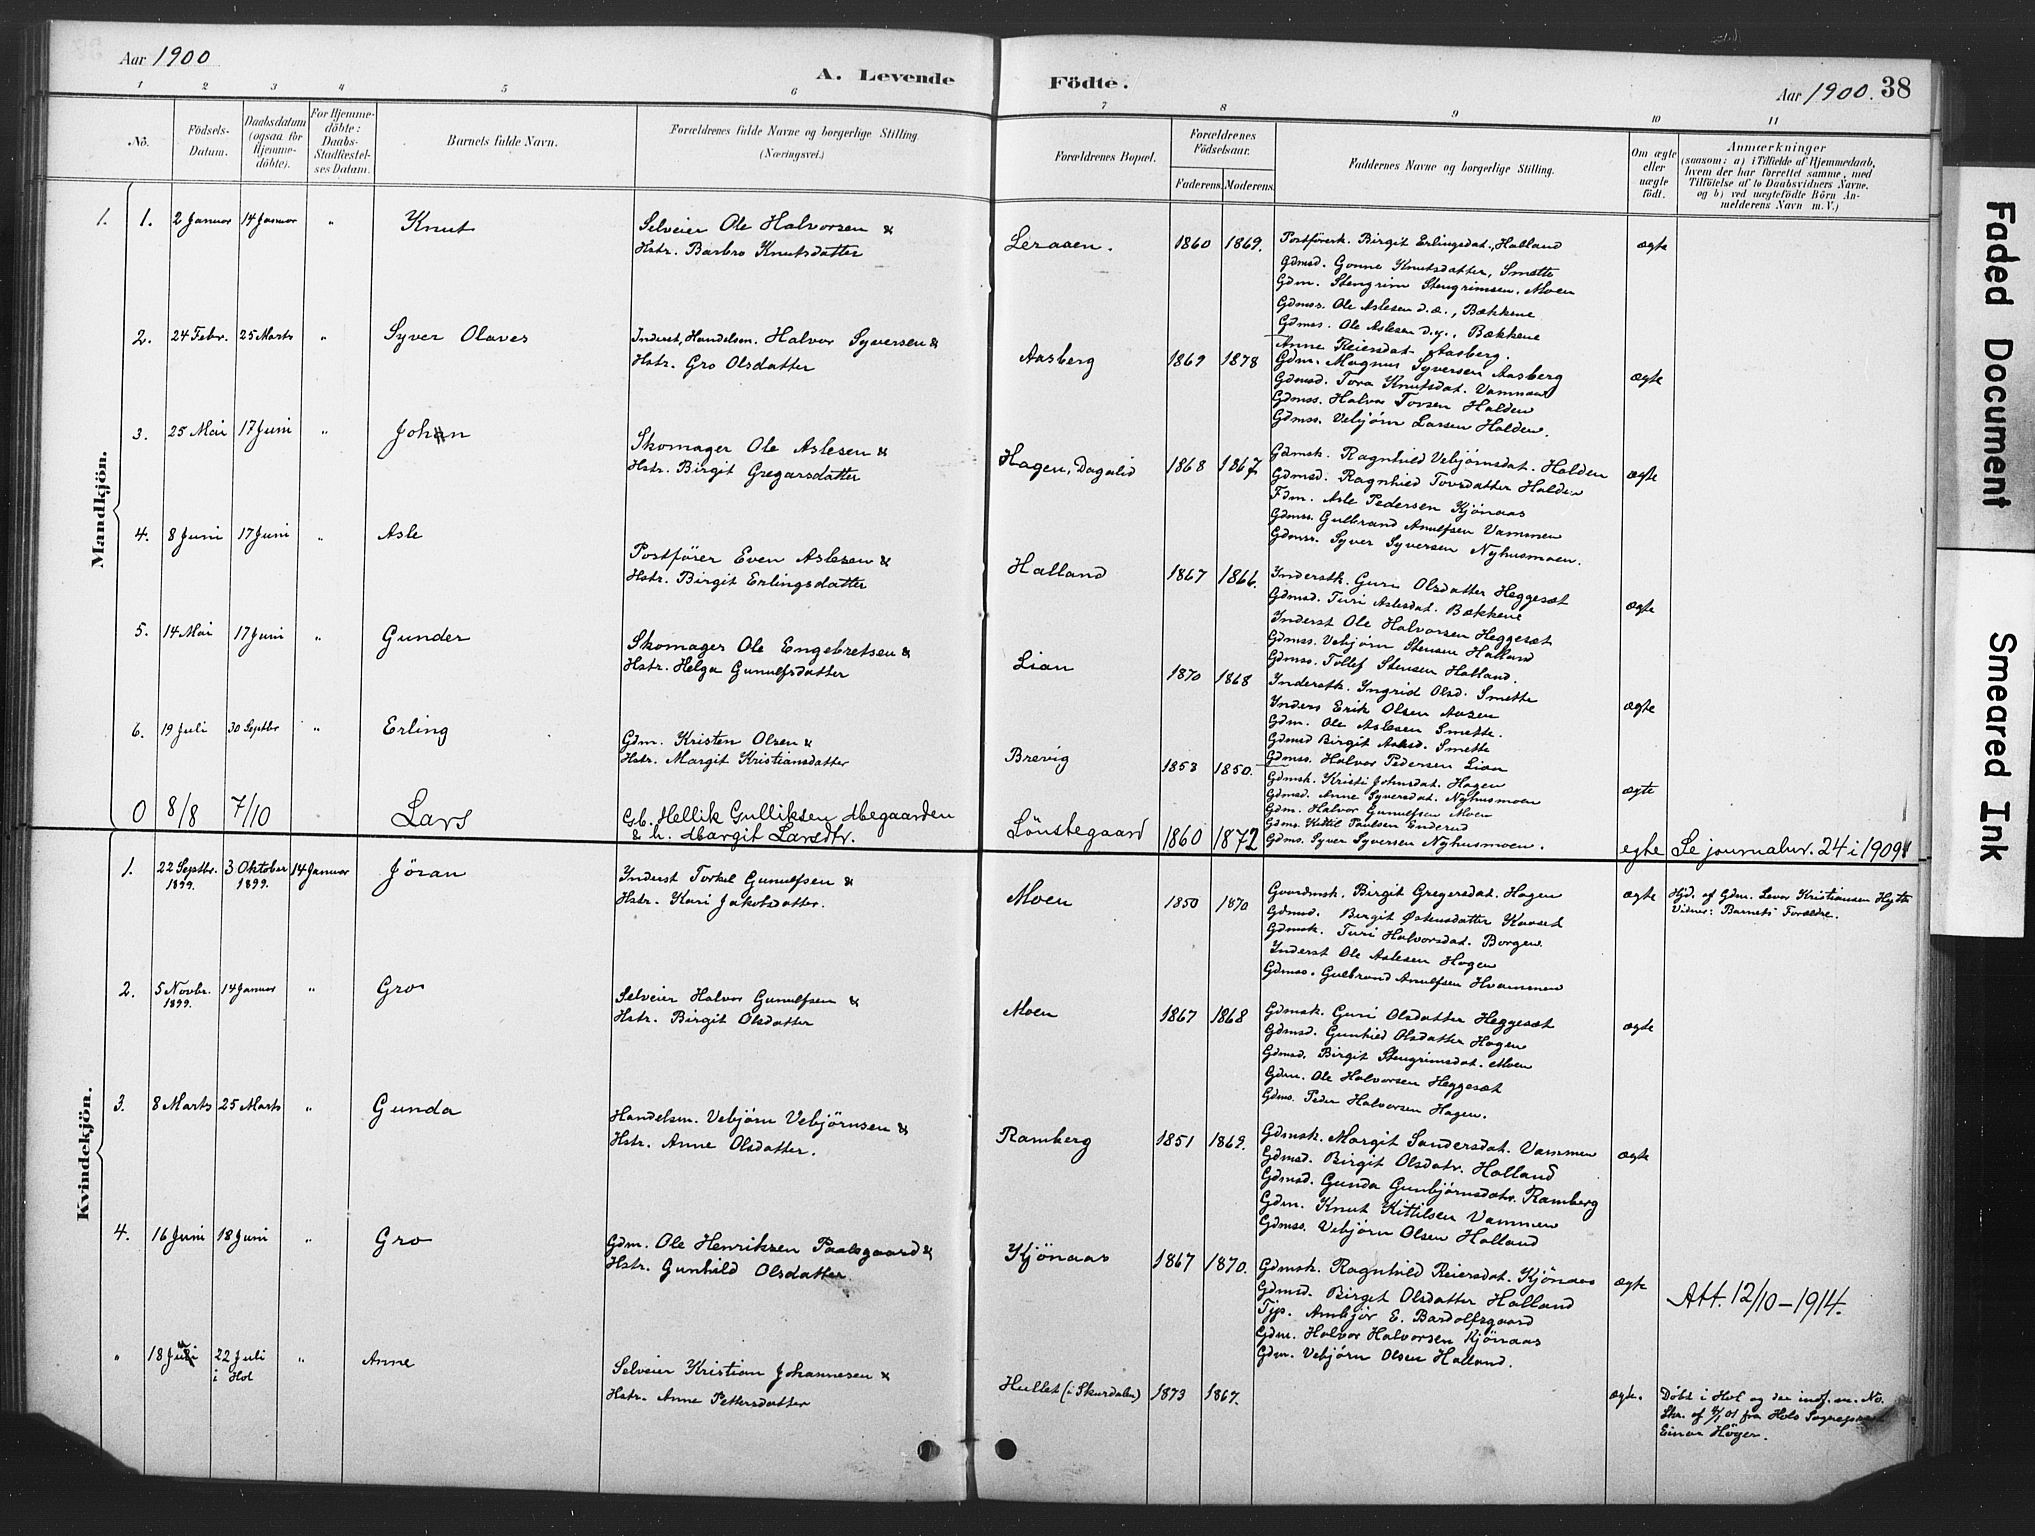 Aar 1900
A. Levende Födte.
Aar 1900. 38
1 2 3 4 5 6 7 8 9 10 11
No.
Födsels-Datum.
Daabsdatum (ogsaa for Hjemme-döbte).
For Hjemme-döbte: Daabs-Stadfæstel-ses Datum.
Barnets fulde Navn.
Forældrenes fulde Navne og borgerlige Stilling. (Næringsvei.)
Forældrenes Bopæl.
Forældrenes Födselsaar.
Faderens. Moderens.
Faddernes Navne og borgerlige Stilling.
Om ægte eller uægte födt.
Anmærkninger
(saasom: a) i Tilfælde af Hjemmedaab, hvem der har forrettet samme, med Tilföielse af to Daabsvidners Navne. og b) ved uægtefödte Börn An-melderens Navn m. V.)
Mandkjön.
1. 1. 2 Januar 14 Januar " Knut
Selveier Ole Halvorsen &
Hstr. Barbro Knutsdatter
Leraaen. 1860 1869.
Postförersk. Birgit Erlingsdat., Halland
Gdmsd. Gonne Knutsdatter, Smette
Gdm. Stengrim Stengrimsen, Moen
Gdmss. Ole Aslesen d.æ., Bækkene
Gdmss. Ole Aslesen d.y., Bækkene
ægte
2. 24 Febr. 25 Marts " Syver Olaves
Inderst, Handelsm. Halvor Syversen &
Hstr. Gro Olsdatter
Aasberg 1869 1878
Anne Reiersdat. Aasberg.
Gdm. Magnus Syversen Aasberg
Gdmsd. Tora Knutsdat. Vammen
Gdmss. Halvor Torsen Halden
Gdmss. Vebjörn Larsen Halden.
ægte
3. 25 Mai 17 Juni " Johan
Skomager Ole Aslesen &
Hstr. Birgit Gregarsdatter
Hagen, Dagalid 1868 1867
Gdmsk. Ragnhild Vebjørnsdat. Halden
Gdmsd. Ragnhild Torsdatter Halden
Fdm. Asle Pedersen Kjönaas
Gdmss. Gulbrand Arnulfsen Vammen
Gdmss. Syver Syversen Nyhusmoen.
ægte
4. 8 Juni 17 Juni " Asle
Postfører Even Aslesen &
Hstr. Birgit Erlingsdatter
Halland 1867 1866.
Indersk. Guri Olsdatter Heggesæt
Gdmsd. Turi Aslesdat. Bækkene
Inderst Ole Halvorsen Heggesæt
Gdmss. Vebjørn Stensen Halland
Gdmss. Tollef Stensen Halland.
ægte
5. 14 Mai 17 Juni " Gunder
Skomager Ole Engebretsen &
Hstr. Helga Gunulfsdatter
Lian 1870 1868
Indersk. Ingrid Olsd. Smette
Inders Erik Olsen Aasen
Gdm. Ole Aslesen Smette.
Gdmsd Birgit Aslesd. Smette
Gdmss. Halvor Pedersen Lian
ægte
6. 19 Juli 30 Septbr " Erling
Gdm. Kristen Olsen &
Hstr. Margit Kristiansdatter
Brevig 1853 1850.
Gdmsk. Kristi Johnsdat. Hagen
Gdmsd. Anne Syversdat. Nyhusmoen
Gdm. Halvor Gunulfsen Moen
Gdms. Kittil Paulsen Enderud
Gdms. Syver Syversen Nyhusmoen.
ægte
0 8/8 7/10 Lars
G.b. Hellik Gulliksen Megaarden
& h. Margit Larsdtr.
Lönstegaard 1860 1872
egte Se journalnr. 24 i 1909
Kvindekjön.
1. 22 Septbr. 1899. 3 Oktober 1899. 14 Januar Jöran
Inderst Torkel Gunulfsen &
Hstr. Kari Jakobsdatter.
Moen 1850 1870
Gaardmsk. Birgit Gregersdat. Hagen
Gdmsd. Birgit Østensdatter Kaaset
Gdmsk. Turi Halvorsdat. Borgen
Inderst Ole Aslesen Hagen
Gdmss. Gulbrand Arnulfsen Hvammen
ægte
Hjd. af Gdm. Levor Kristiansen Hytte
Vidner: Barnets Forældre.
2. 5 Novbr. 1899. 14 Januar " Gro
Selveier Halvor Gunulfsen &
Hstr. Birgit Olsdatter
Moen 1867 1868
Gdmsk. Guri Olsdatter Heggesæt
Gdmsd. Gunhild Olsdatter Hagen
Gdmsd. Birgit Stengrimsdat. Moen
Gdm. Ole Halvorsen Heggesæt
Gdms. Peder Halvorsen Hagen.
ægte
3. 8 Marts 25 Marts " Gunda
Handelsm. Vebjørn Vebjørnsen &
Hstr. Anne Olsdatter.
Ramberg 1851 1869.
Gdmsk. Margit Sandersdat. Vammen
Gdmsd. Birgit Olsdatr. Halland
Gdmsd. Gunda Gunbjørnsdatr. Ramberg
Gdm. Knut Kittilsen Vammen
Gdmss. Vebjørn Olsen Halland
ægte
4. 16 Juni 18 Juni " Gro
Gdm. Ole Henriksen Paalsgaard &
Hstr. Gunhild Olsdatter
Kjönaas 1867 1870.
Gdmsk. Ragnhild Reiersdat. Kjönaas
Gdmsd. Birgit Olsdatter Halland
Tjp. Ambjör E. Bardolfsgaard
Gdm. Halvor Halvorsen Kjönaas
Gdm. Vebjørn Olsen Halland.
ægte
Att. 12/10-1914.
" 18 Juli 22 Juli i Hol " Anne
Selveier Kristian Johannesen &
Hstr. Anne Pettersdatter
Hullet (i Skurdalen) 1873 1867.
ægte.
Døbt i Hol og der indf. m. No.
Skr. af 4/1 01 fra Hols Sogneprest
Einar Höyer.
Faded Document
Smeared Ink